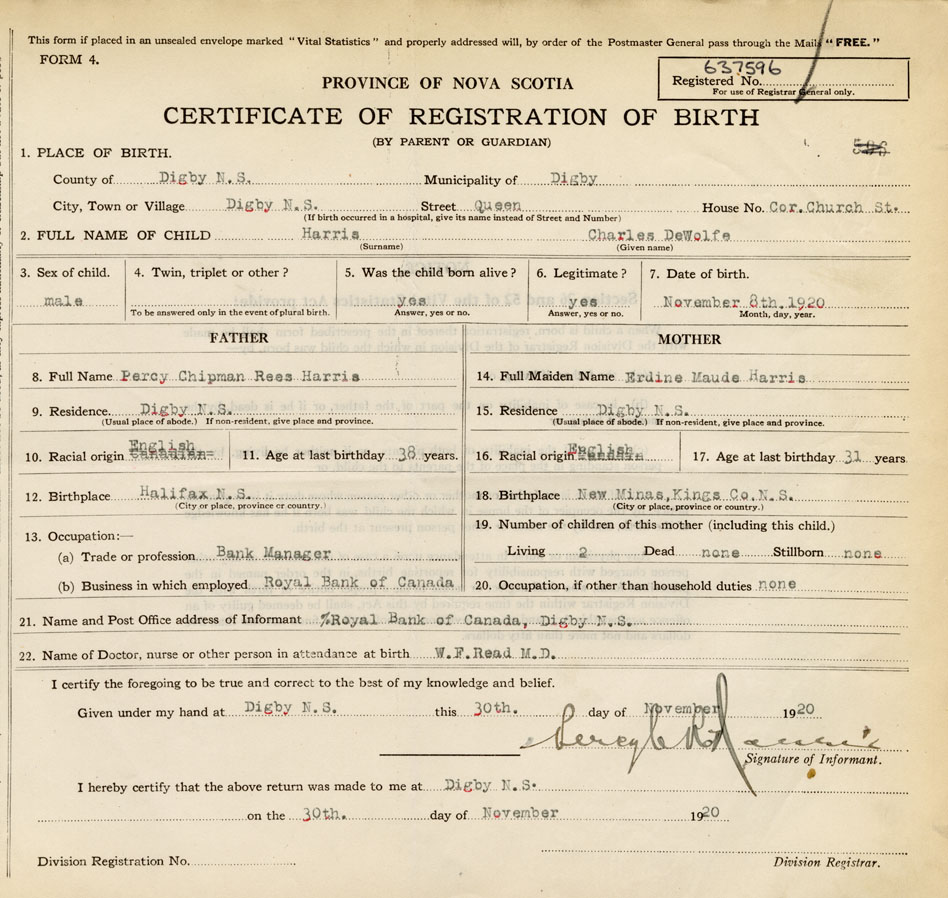 This form if placed in an unsealed envelope marked "Vital Statistics" and properly addressed will, by order of the Postmaster General pass through the Mails "FREE."
FORM 4.
637596
Registered No.
For use of Registrar General only.
PROVINCE OF NOVA SCOTIA
CERTIFICATE OF REGISTRATION OF BIRTH
(BY PARENT OR GUARDIAN)
1. PLACE OF BIRTH.
County of Digby N.S. Municipality of Digby
City, Town or Village Digby N.S. Street Queen House No. Cor.Church St.
(If birth occurred in a hospital, give its name instead of Street and Number)
2. FULL NAME OF CHILD Harris Charles DeWolfe
(Surname) (Given name)
3. Sex of child. 4. Twin, triplet or other? 5. Was the child born alive? 6. Legitimate? 7. Date of birth.
male yes yes November 8th, 1920
To be answered only in the event of plural birth. Answer, yes or no. Answer, yes or no. Month, day, year.
FATHER MOTHER
8. Full Name Percy Chipman Rees Harris 14. Full Maiden Name Erdine Maude Harris
9. Residence. Digby N.S. 15. Residence Digby N.S.
(Usual place of abode.) If non-resident, give place and province. (Usual place of abode.) If non-resident, give place and province.
10. Racial origin English Canadian 11. Age at last birthday 38 years. 16. Racial origin English 17. Age at last birthday 31 years.
12. Birthplace Halifax N.S. 18. Birthplace New Minas,Kings Co.N.S.
(City or place, province or country.) (City or place, province or country.)
13. Occupation:— 19. Number of children of this mother (including this child.)
(a) Trade or profession Bank Manager Living 2 Dead none Stillborn none
(b) Business in which employed Royal Bank of Canada 20. Occupation, if other than household duties none
21. Name and Post Office address of Informant %Royal Bank of Canada, Digby N.S.
22. Name of Doctor, nurse or other person in attendance at birth W.F.Read M.D.
I certify the foregoing to be true and correct to the best of my knowledge and belief.
Given under my hand at Digby N.S. this 30th. day of November 1920
Percy C R Harris
Signature of Informant.
I hereby certify that the above return was made to me at Digby N.S.
on the 30th. day of November 1920
Division Registration No.
Division Registrar.